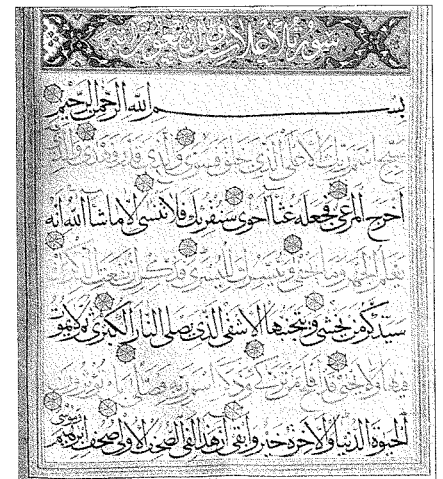 سورة الاعلى
بسم الله الرحمن الرحيم
سبح اسم ربك الاعلى الذي خلق فسوى والذي قدر فهدى والذي
اخرج المرعى فجعله غثاا احوى سنقرئك فلا تنسى الا ما شاا الله انه
يعلم الجهر وما يخفى ونيسرك لليسرى فذكر ان نفعت الذكرى
سيذكر من يخشى ويتجنبها الاشقى الذي يصلى النار الكبرى ثم لا يموت
فيها ولا يحيى قد افلح من تزكى وذكر اسم ربه فصلى بل تؤثرون
الحيوة الدنيا والاخرة خير وابقى ان هذا لفي الصحف الاولى صحف ابرهيم وموسى